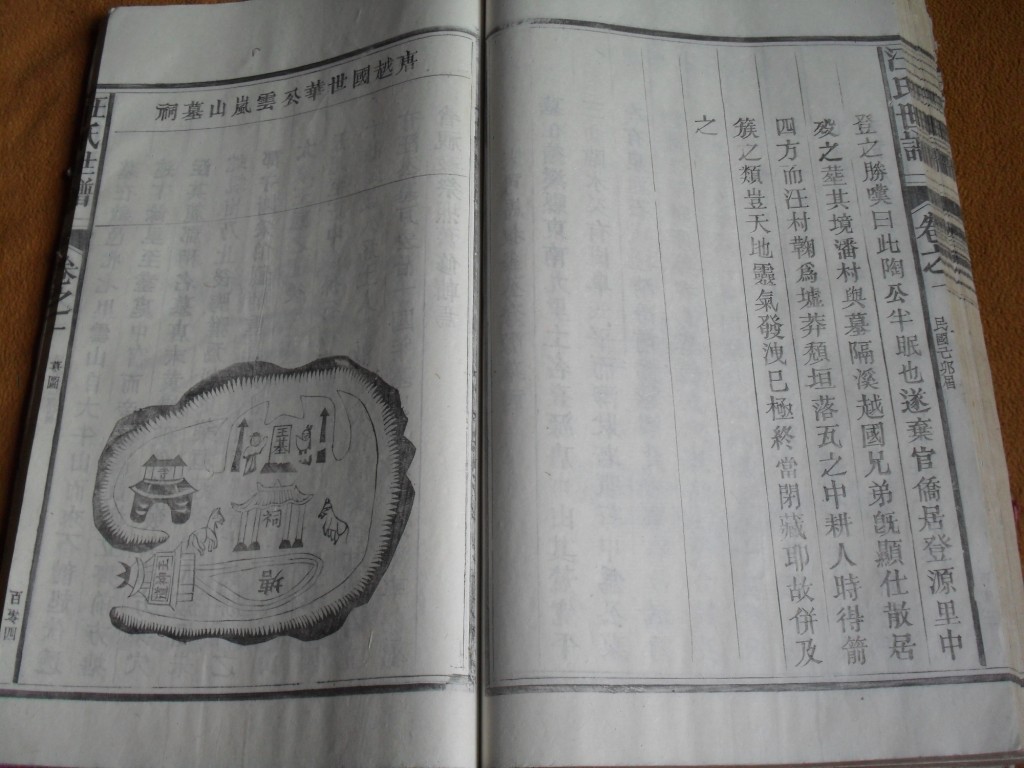 汪氏世譜
卷之一
民國己卯届
登之勝嘆曰此陶公半眠也遂棄官僑居登源里中
歿之塟其境潘村與墓隔溪越國兄弟旣顯仕散居
四方而汪村鞠爲墟莽頹垣落瓦之中耕人時得箭
簇之類豈天地靈氣發洩已極終當閉藏耶故併及
之
唐越國世華公雲嵐山墓祠
墓
祠
塘
汪氏世譜
卷之一
墓圖